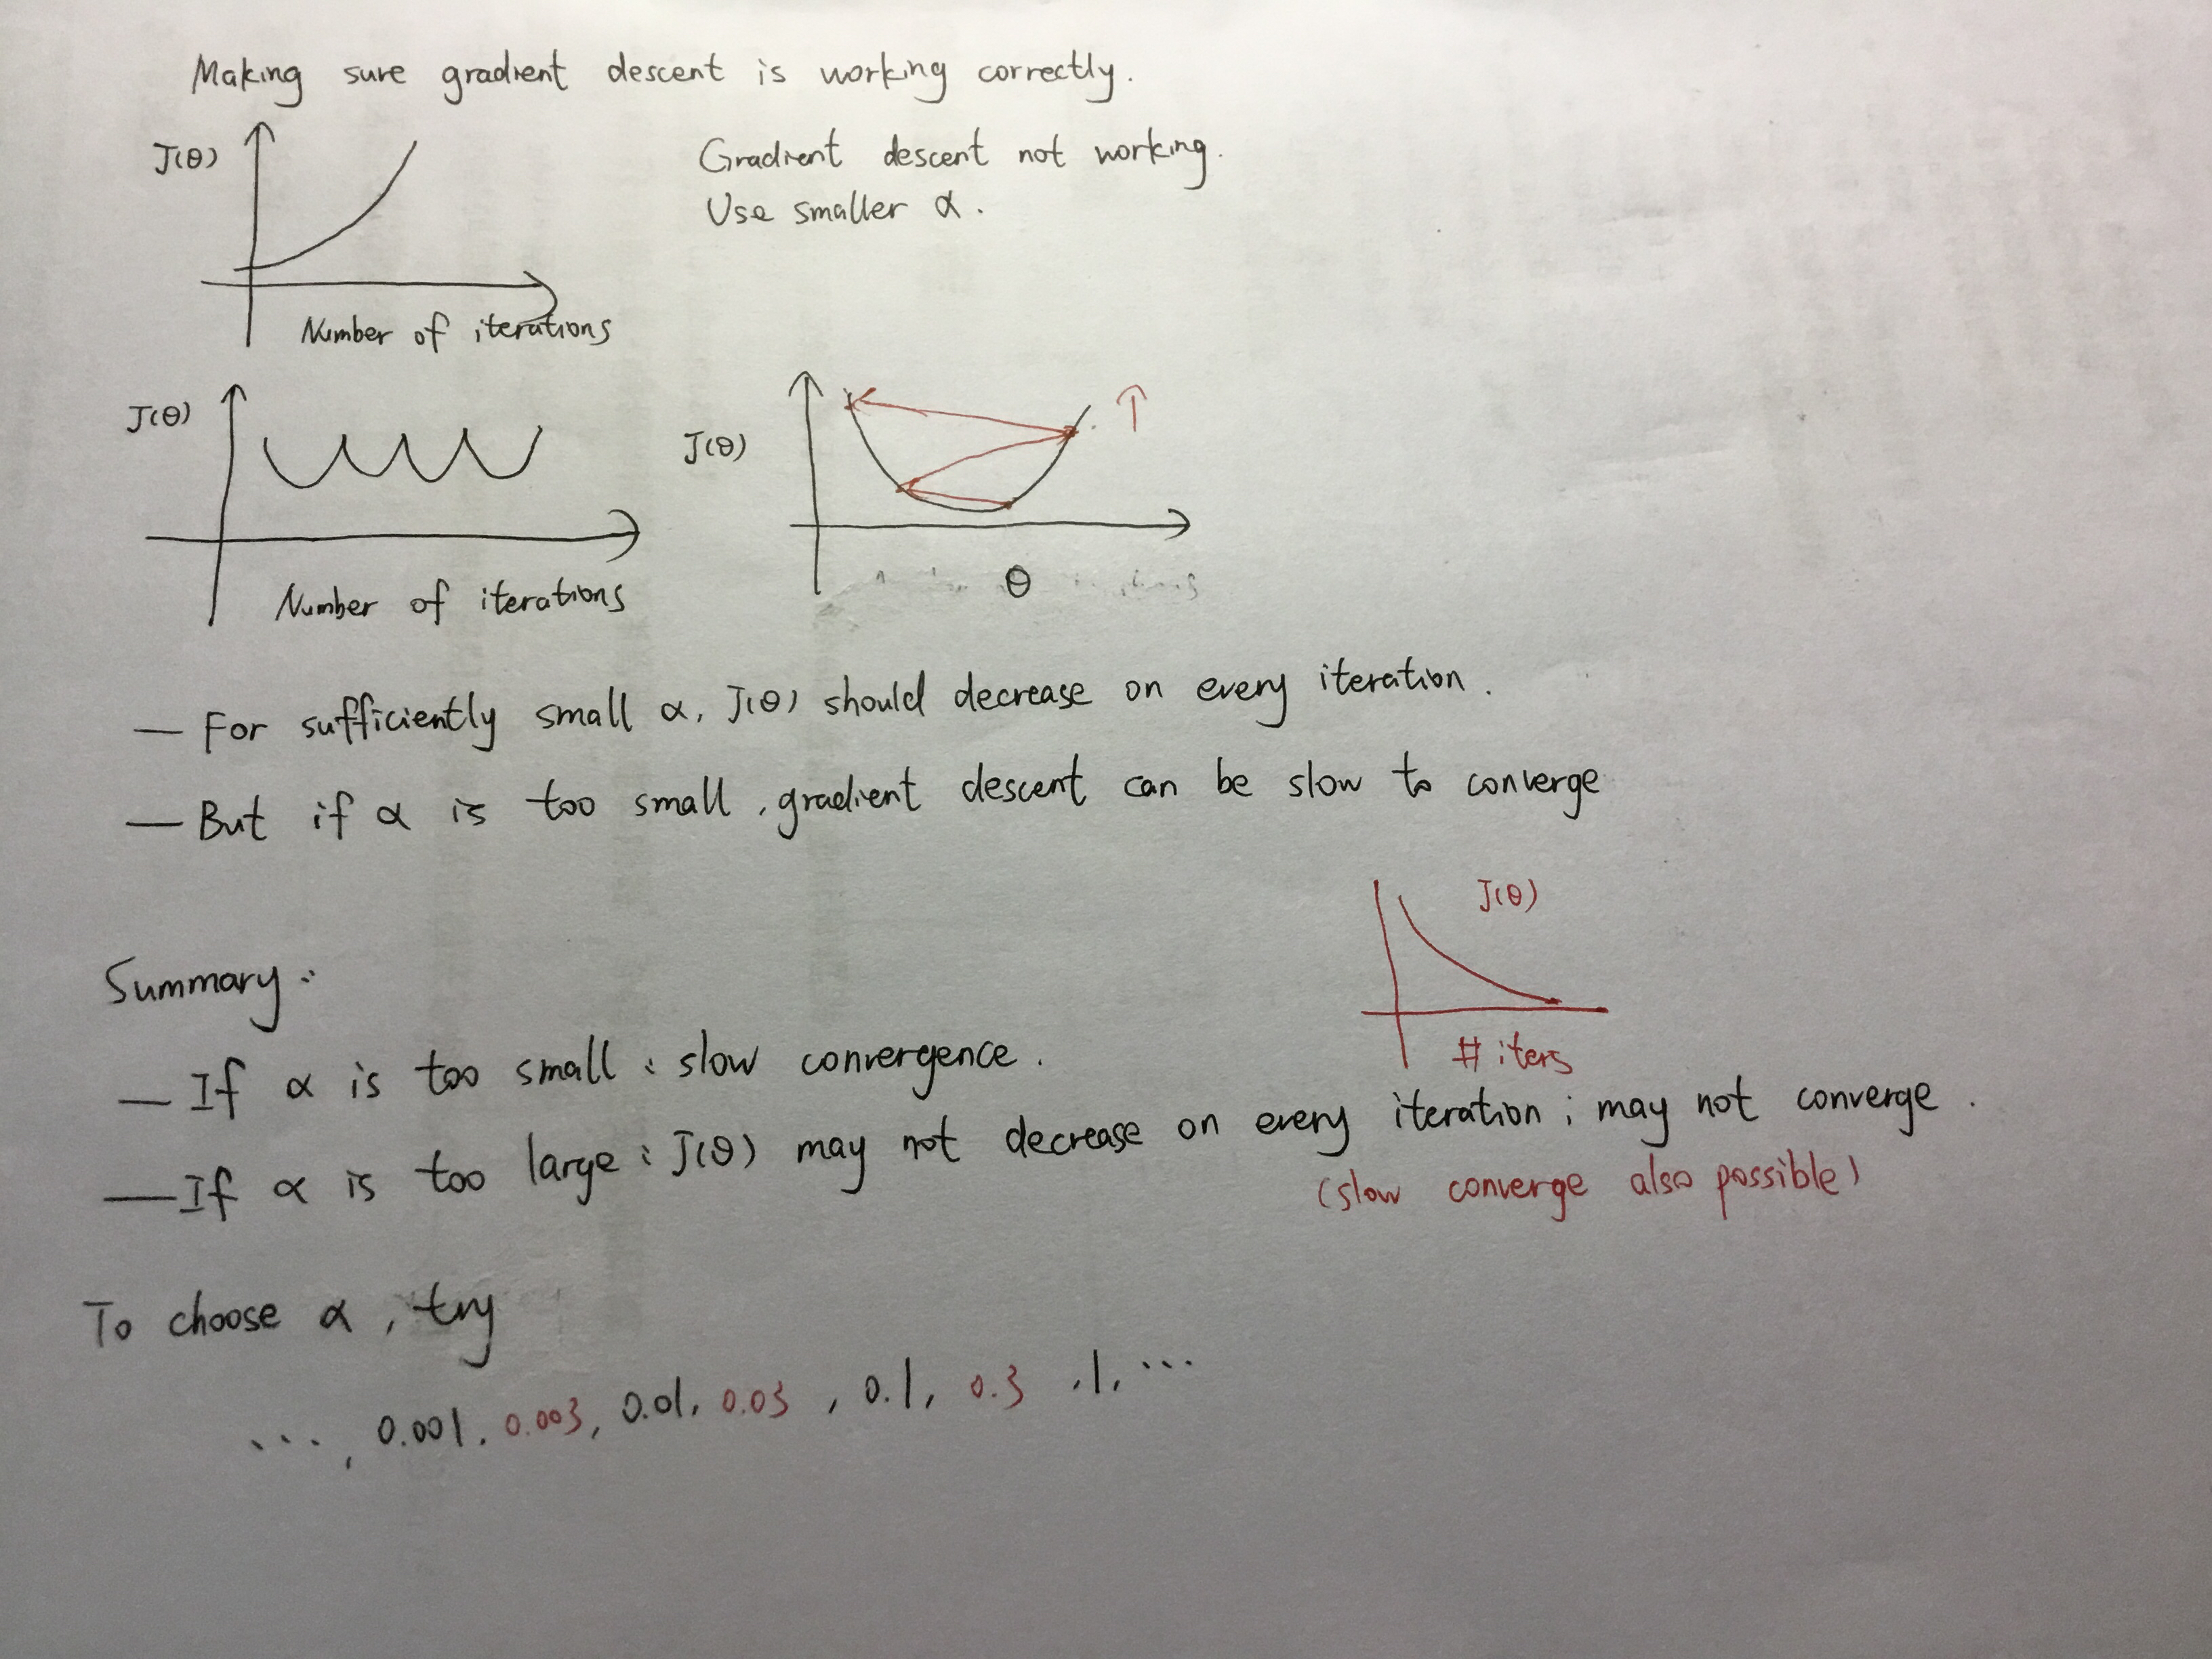 Making sure gradient descent is working correctly.
J(θ)
Gradient descent not working.
Use smaller α.
Number of iterations
J(θ)
Number of iterations
J(θ)
θ
— For sufficiently small α, J(θ) should decrease on every iteration.
— But if α is too small, gradient descent can be slow to converge
J(θ)
# iters
Summary:
— If α is too small: slow convergence.
— If α is too large: J(θ) may not decrease on every iteration; may not converge.
(slow converge also possible)
To choose α, try
..., 0.001, 0.003, 0.01, 0.03, 0.1, 0.3, 1, ...